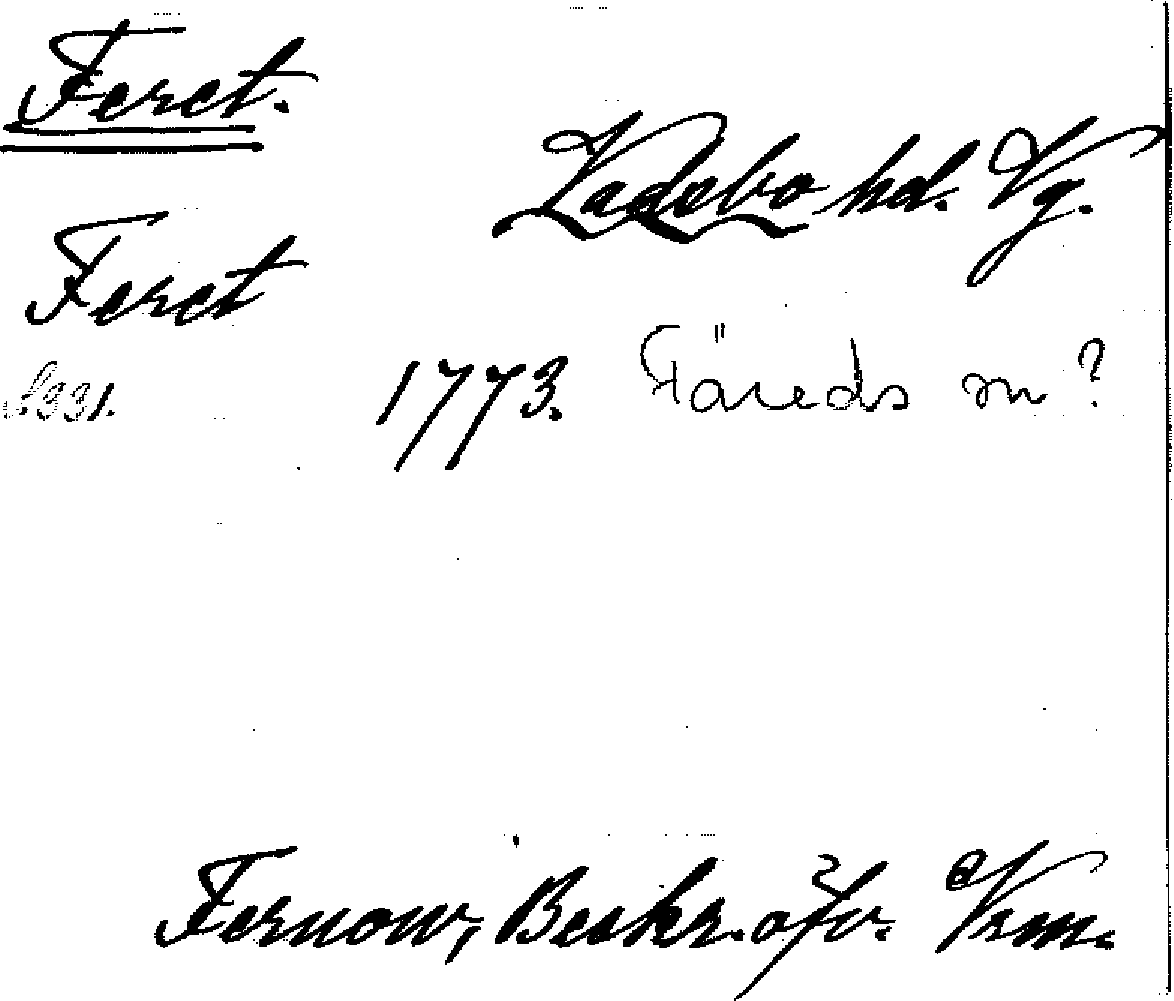 Feret.
Vadsbo hd. Vg.
Feret
S. 331. 1773. Färeds sn?
Fernow, Beskr. öfv. Vrm.